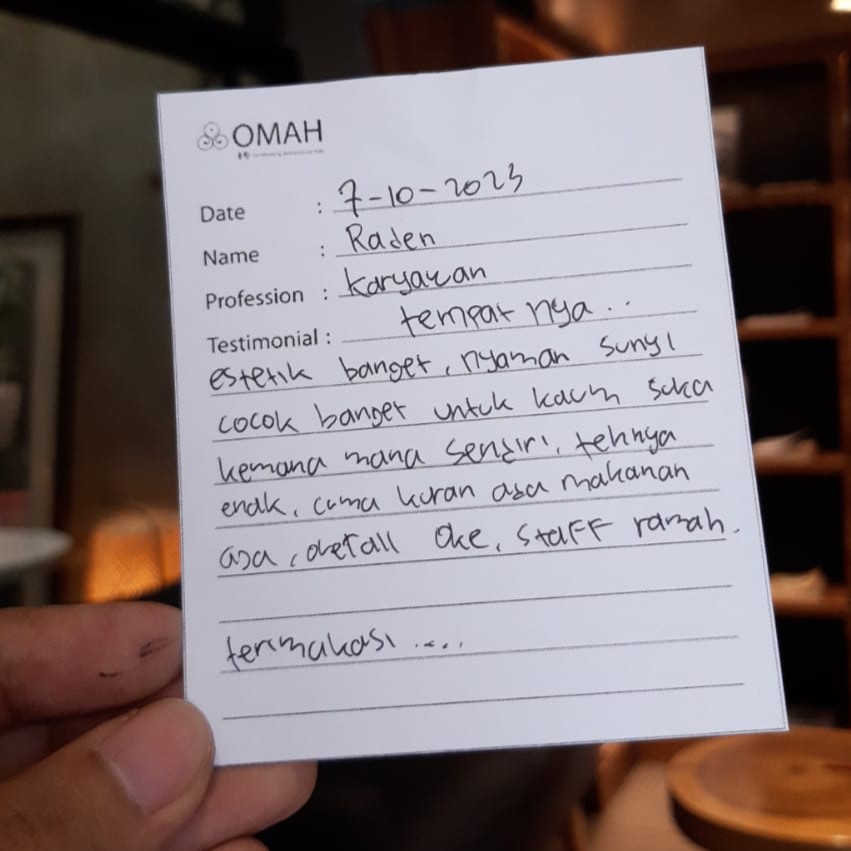 OMAH
Date : 7-10-2023
Name : Raden
Profession : Karyawan
Testimonial : tempat nya..
estetik banget, nyaman sunyi
cocok banget untuk kaum suka
kemana mana sendiri, tehnya
enak, cuma kuran ada makanan
aja, overall oke, staff ramah.
terimakasi .....